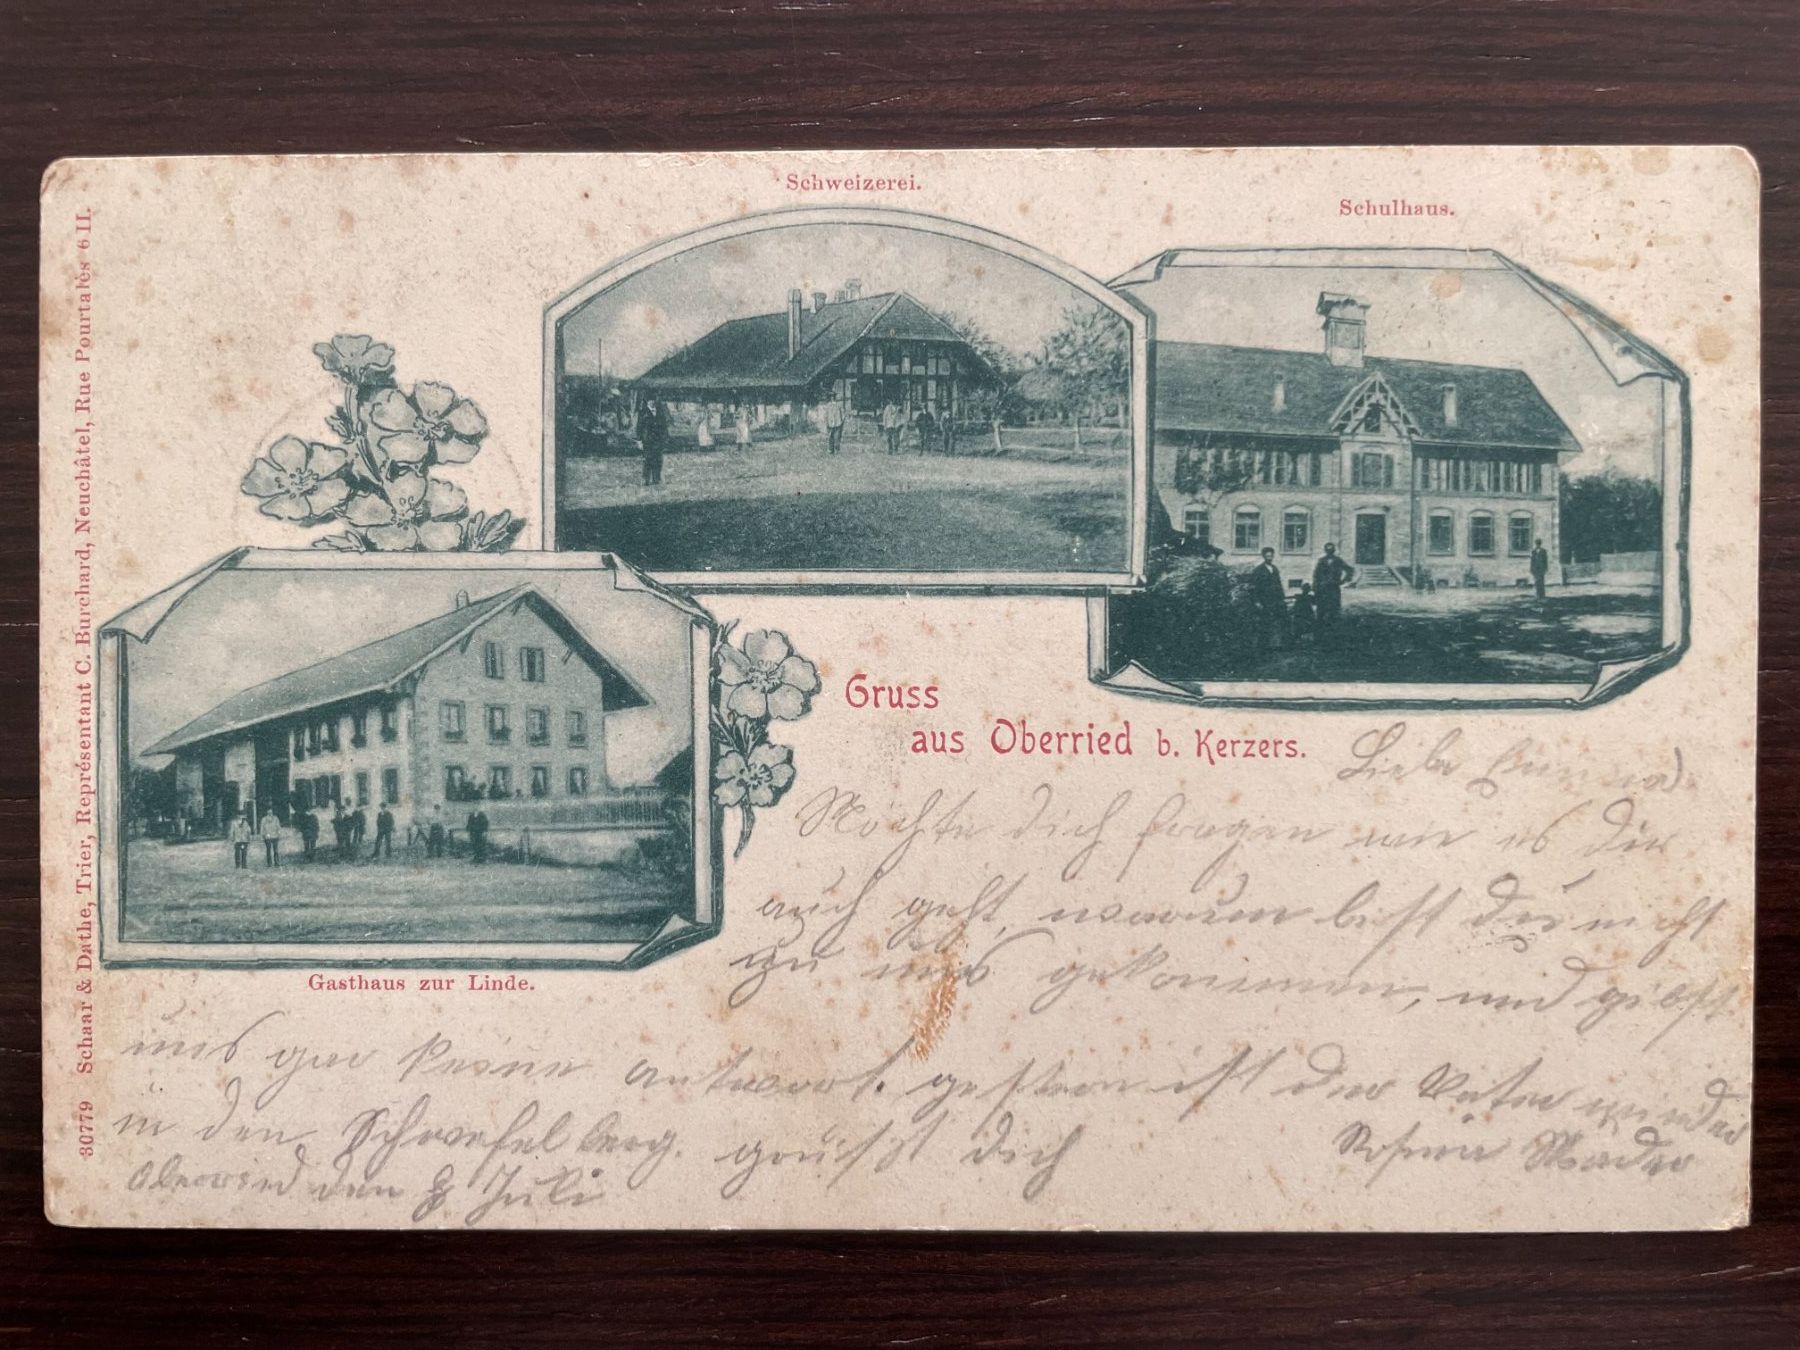 Schweizerei.
Schulhaus.
30779 Schaar & Dathe, Trier, Représentant C. Burchard, Neuchâtel, Rue Pourtalès 6 II.
Gruss
aus Oberried b. Kerzers.
Gasthaus zur Linde.
Liebe
Möchte dich fragen wie es dir
auch geht, warum bist du nicht
zu uns gekommen, und gibst
uns gar keine antwort. gestern ist der Vater wieder
in den Schwefelberg. grüsst dich Rosina Mäder
Oberried den 8 Juli